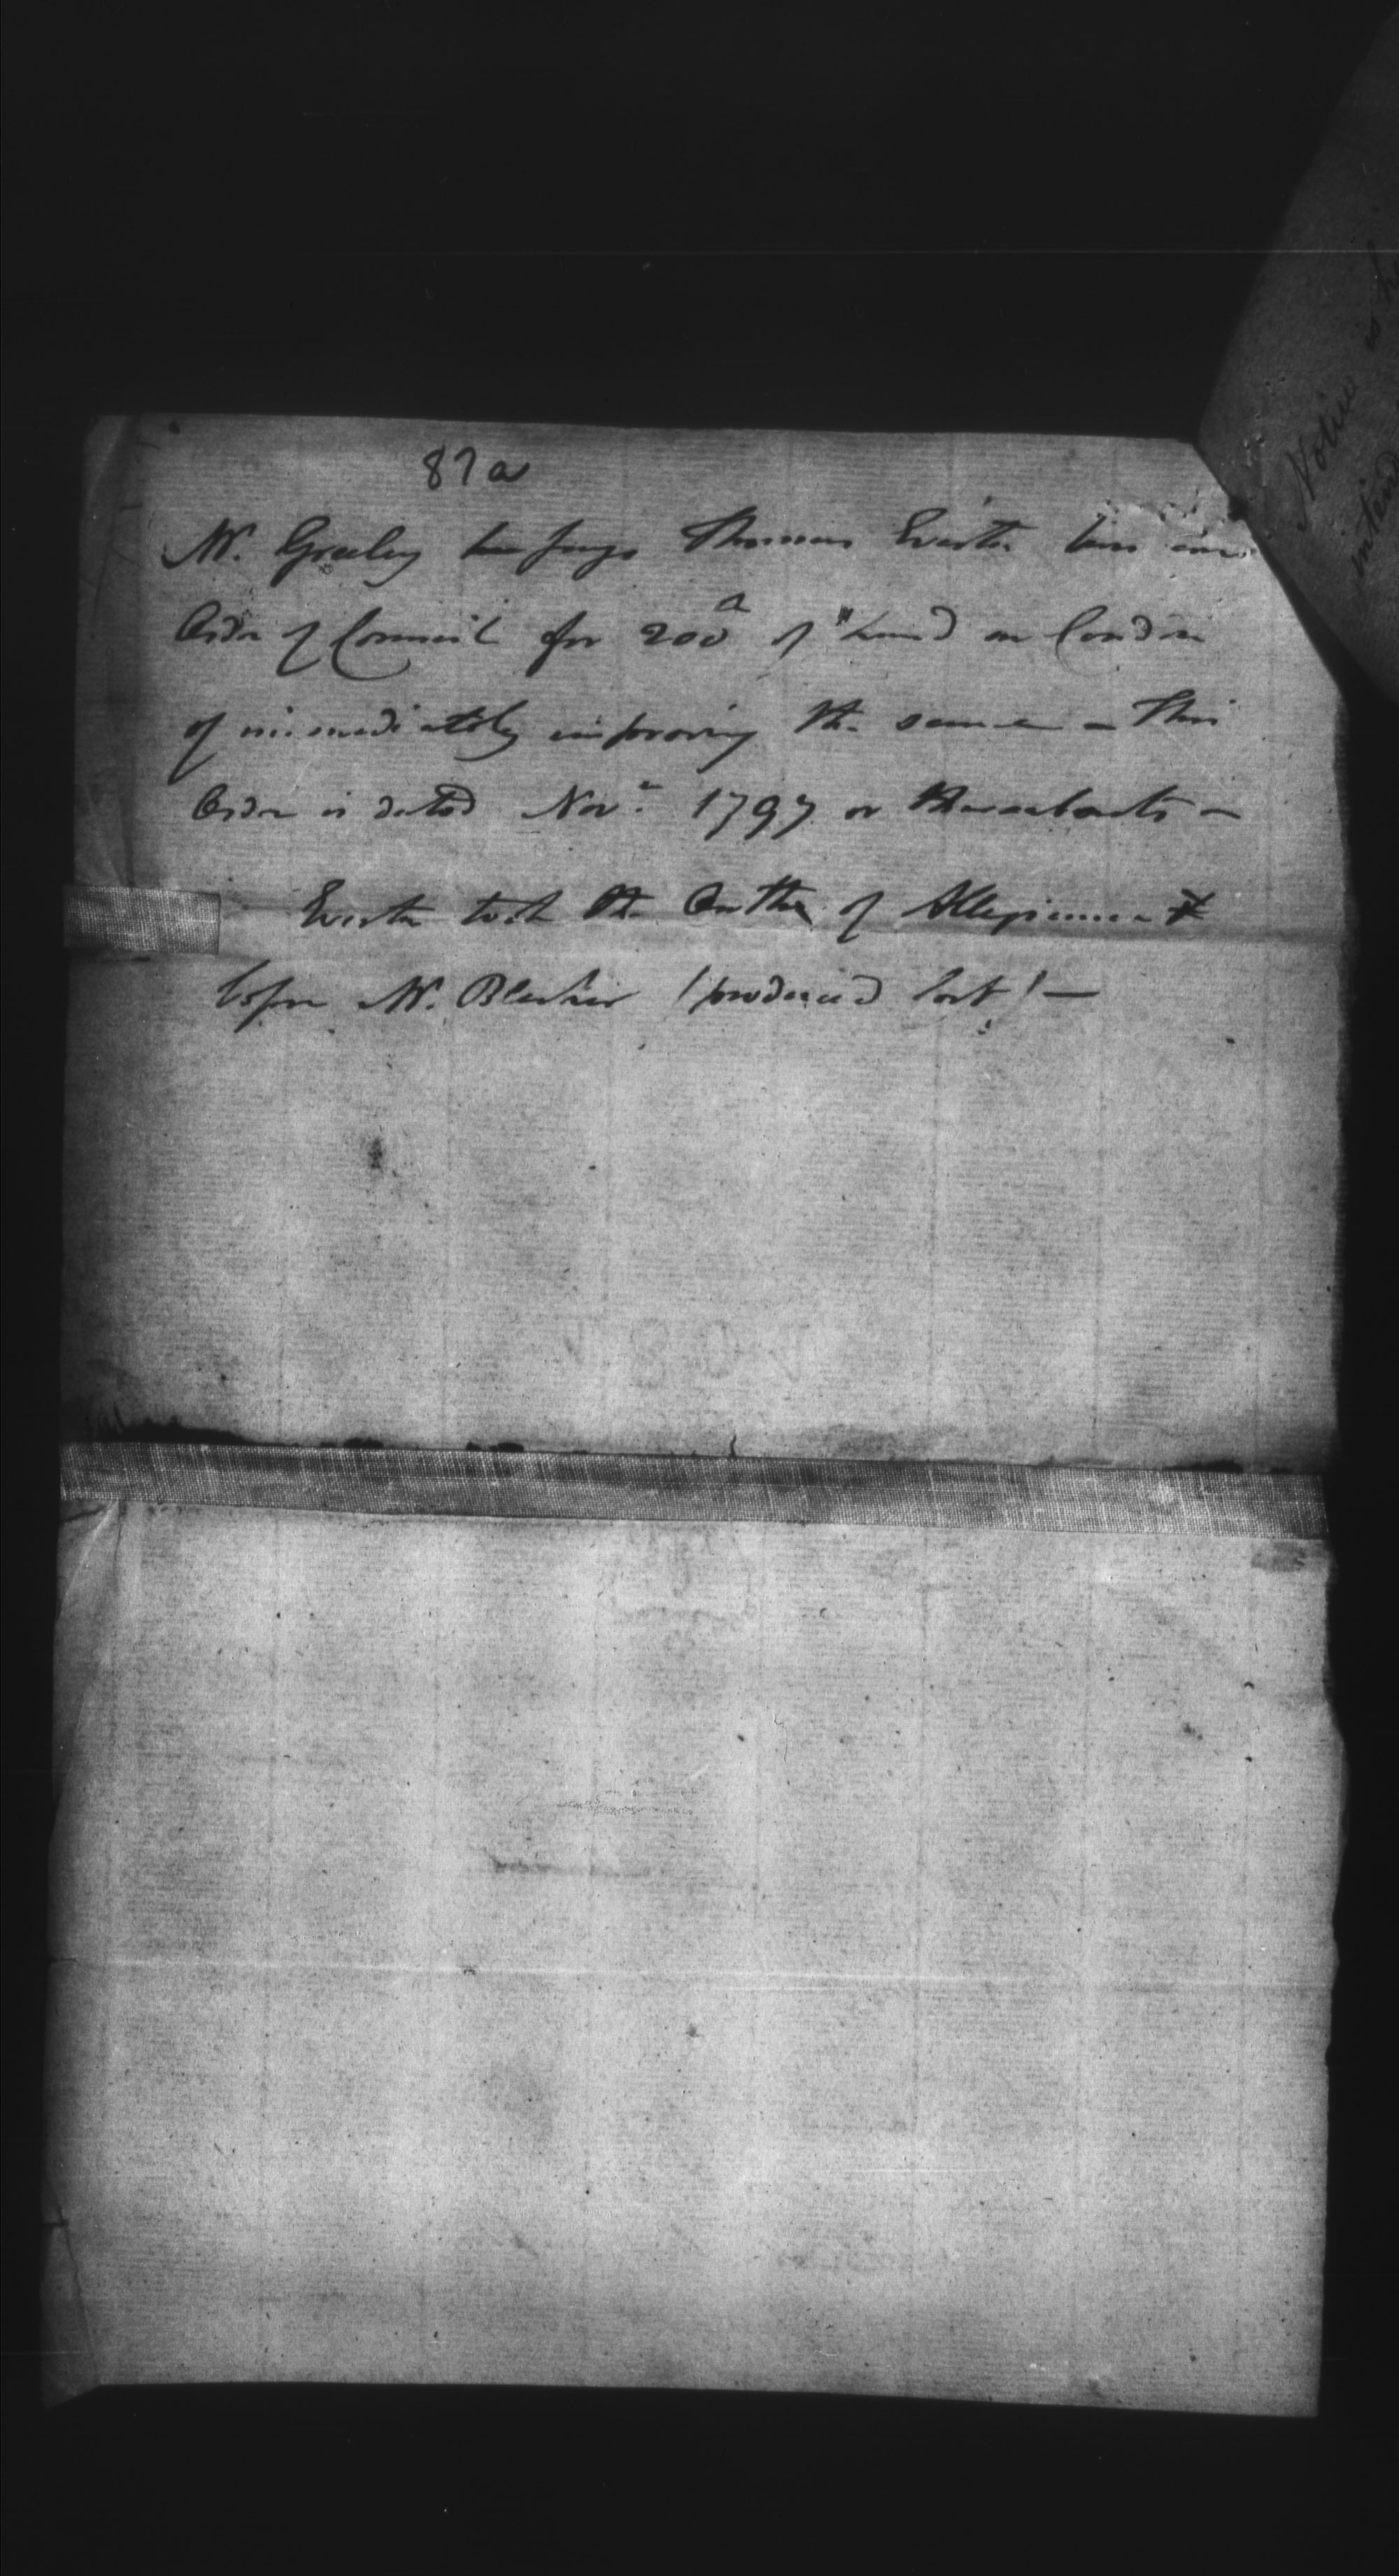 87a
Mr. Greeley says Thomas Evarts has an
Order of Council for 200 a of Land on Condon
of immediately improving the same - This
Order is dated Novr. 1797 or thereabouts -
Evarts took the Oaths of Allegiance &
before Mr. Blecker (produced Cert) -
Notice is he
intend